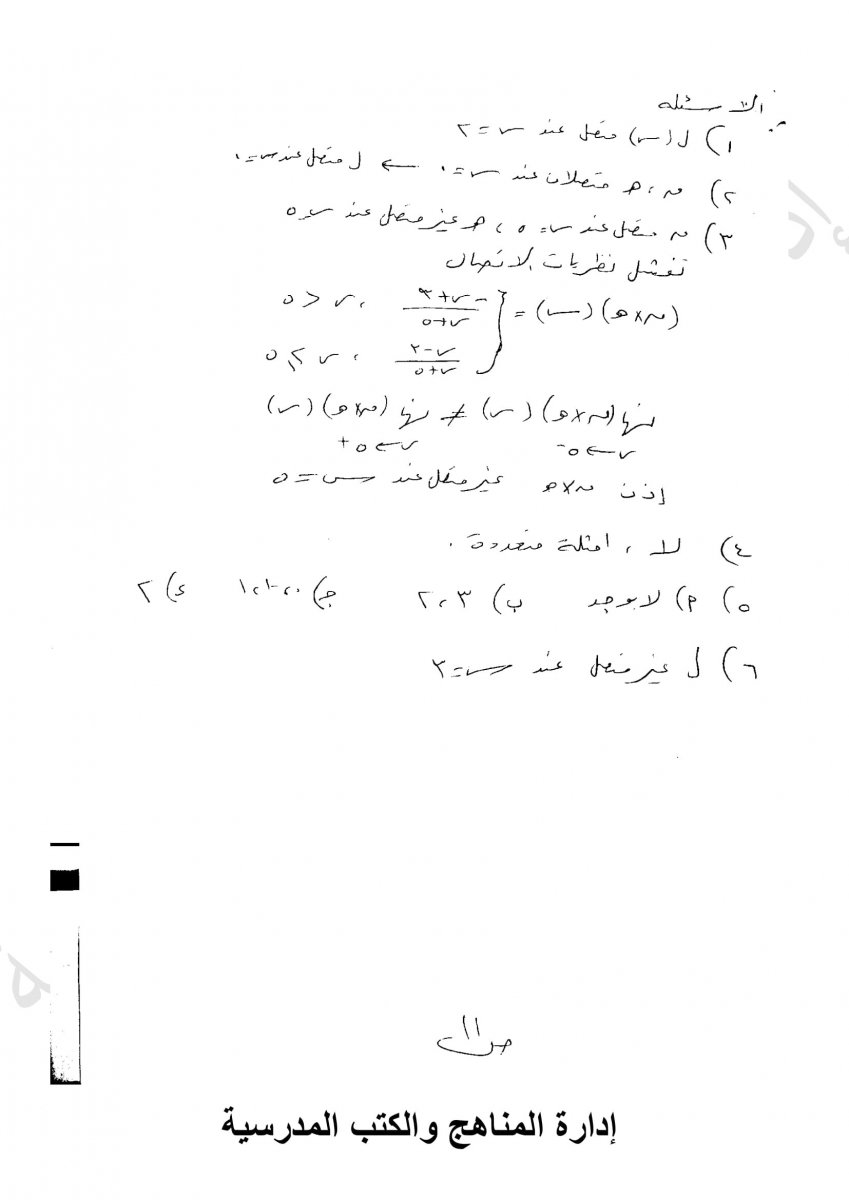 الأسئلة
١) ل(س) متصل عند س = ٢
٢) ن ، هـ متصلان عند س = ٠ ← ل متصل عند س = ٠
٣) ن متصل عند س = ٥ ، هـ غير متصل عند س = ٥
تفشل نظريات الاتصال
(ن×هـ)(س) = { (-س+٣)/(س+٥) ، س < ٥
(س-٢)/(س+٥) ، س ≥ ٥
نها (ن×هـ)(س) ≠ نها (ن×هـ)(س)
س←٥- س←٥+
إذن ن×هـ غير متصل عند س = ٥
٤) لا ، امثلة متعددة .
٥) م) لا يوجد ب) ٣ ، ٢ ج) ٠ ، -١ ، ١ د) ٢
٦) ل غير متصل عند س = ٣
ص ١١
إدارة المناهج والكتب المدرسية